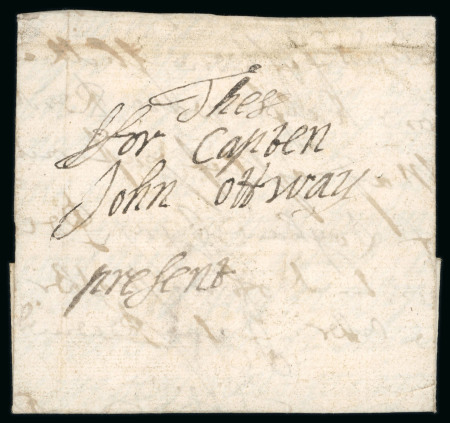 These
ffor Capten
John ottway
present